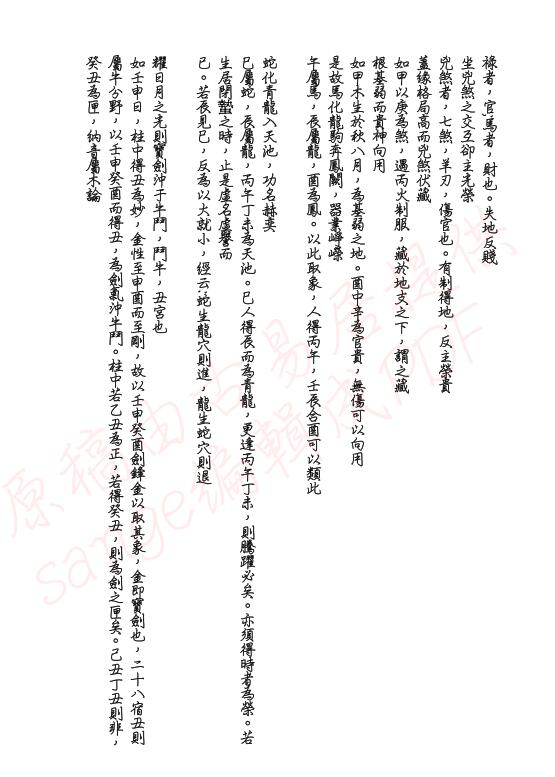 祿者，官馬者，財也。失地反賤
坐兇煞之交互卻主光榮
兇煞者，七煞，羊刃，傷官也。有制得地，反主榮貴
蓋緣格局高而兇煞伏藏
如甲以庚為煞，遇丙火制服，藏於地支之下，謂之藏
根基弱而貴神向用
如甲木生於秋八月，為基弱之地。酉中辛為官貴，無傷可以向用
是故馬化龍駒奔鳳闕，器業崢嶸
午屬馬，辰屬龍，酉為鳳。以此取象，人得丙午，壬辰合酉可以類此
蛇化青龍入天池，功名赫奕
巳屬蛇，辰屬龍，丙午丁未為天池。巳人得辰而為青龍，更逢丙午丁未，則騰躍必矣。亦須得時者為榮。若
生居閉蟄之時，止是虛名虛譽而
已。若辰見巳，反為以大就小，經云蛇生龍穴則進，龍生蛇穴則退
耀日月之光則寶劍沖于牛鬥，鬥牛，丑宮也
如壬申日，柱中得丑為妙，金性至申酉而至剛，故以壬申癸酉劍鋒金以取其象，金即寶劍也，二十八宿丑則
屬牛分野，以壬申癸酉而得丑，為劍氣沖牛鬥。柱中若乙丑為正，若得癸丑，則為劍之匣矣。己丑丁丑則非，
癸丑為匣，納音屬木論
原稿由古易居提供
sange編輯成PDF